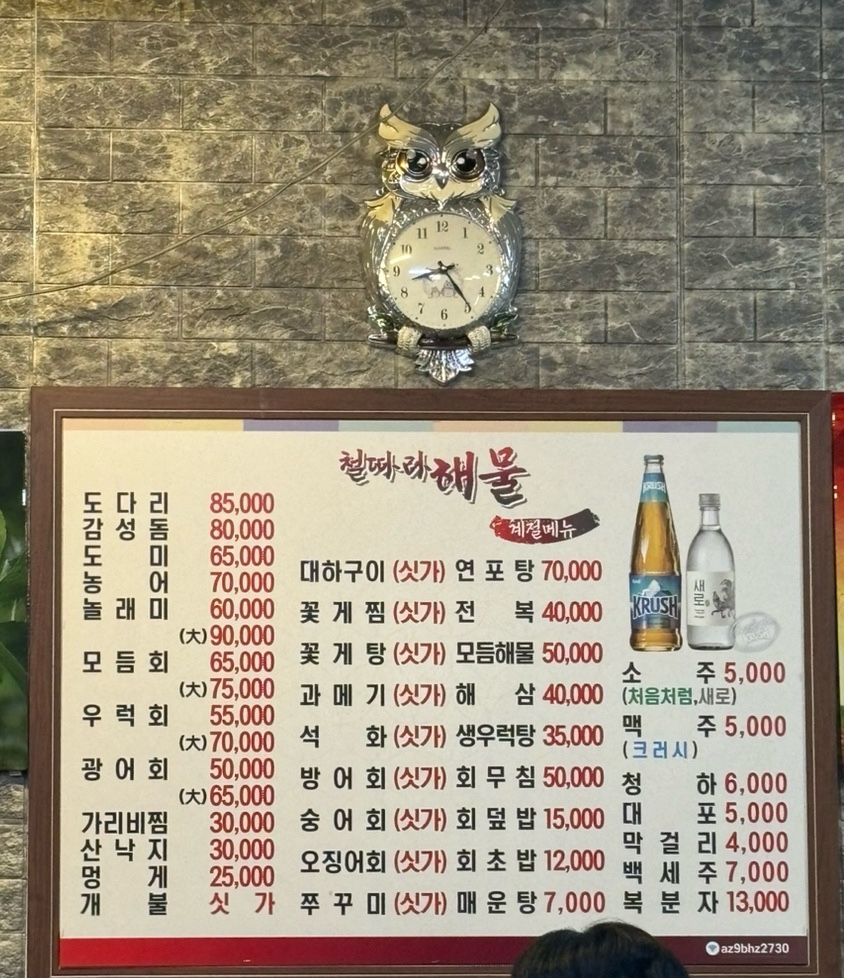 12
1
2
3
4
5
6
7
8
9
10
11
철따라해물
제철메뉴
도다리 85,000
감성돔 80,000
도미 65,000
농어 70,000
놀래미 60,000
(大) 90,000
모듬회 65,000
(大) 75,000
우럭회 55,000
(大) 70,000
광어회 50,000
(大) 65,000
가리비찜 30,000
산낙지 30,000
멍게 25,000
개불 싯가
대하구이 (싯가)
꽃게찜 (싯가)
꽃게탕 (싯가)
과메기 (싯가)
석화 (싯가)
방어회 (싯가)
숭어회 (싯가)
오징어회 (싯가)
쭈꾸미 (싯가)
연포탕 70,000
전복 40,000
모듬해물 50,000
해삼 40,000
생우럭탕 35,000
회무침 50,000
회덮밥 15,000
회초밥 12,000
매운탕 7,000
KRUSH
새로
소주 5,000
(처음처럼,새로)
맥주 5,000
(크러시)
청하 6,000
대포 5,000
막걸리 4,000
백세주 7,000
복분자 13,000
az9bhz2730